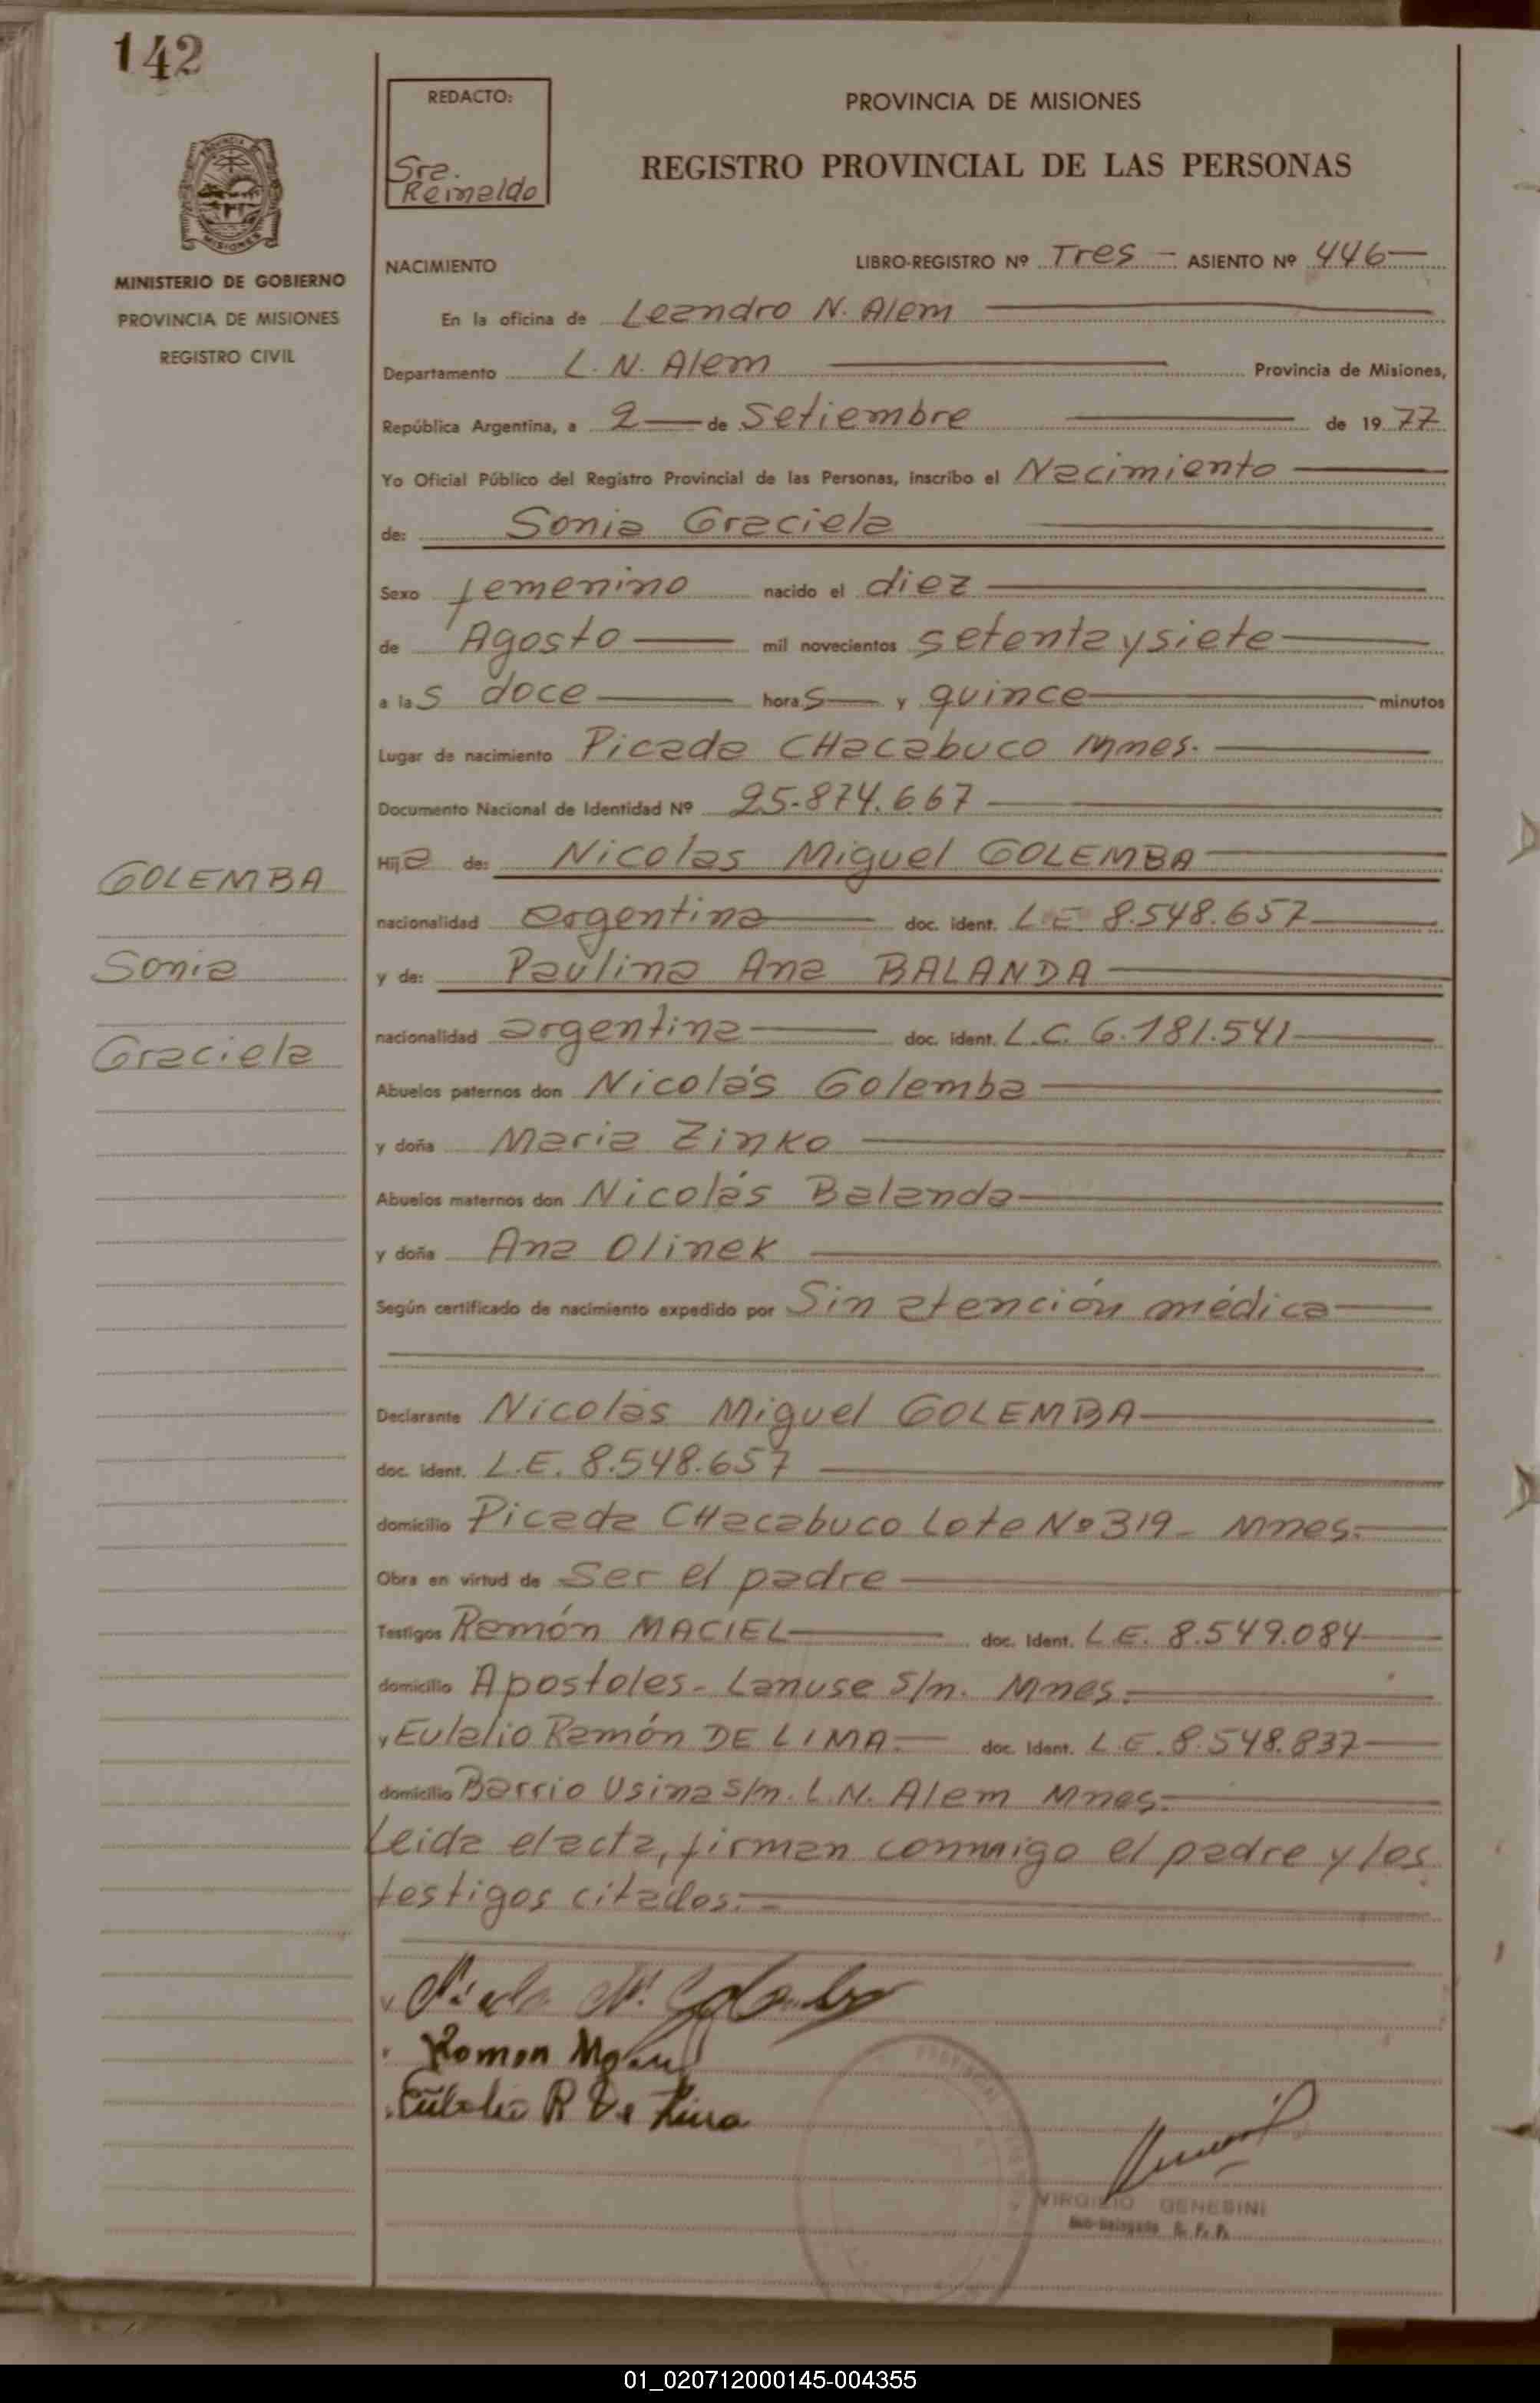 142
REDACTO:
Sra.
Reinaldo
PROVINCIA DE MISIONES
REGISTRO PROVINCIAL DE LAS PERSONAS
MINISTERIO DE GOBIERNO
PROVINCIA DE MISIONES
REGISTRO CIVIL
NACIMIENTO LIBRO-REGISTRO Nº Tres - ASIENTO Nº 446
En la oficina de Leandro N. Alem
Departamento L. N. Alem Provincia de Misiones,
República Argentina, a 2 de Setiembre de 1977
Yo Oficial Público del Registro Provincial de las Personas, inscribo el Nacimiento
de: Sonia Graciela
Sexo femenino nacido el diez
de Agosto mil novecientos setenta y siete
a las doce horas y quince minutos
Lugar de nacimiento Picada CHacabuco Mnes.
Documento Nacional de Identidad Nº 25-874.667
Hija de: Nicolas Miguel GOLEMBA
nacionalidad argentina doc. ident. L.E. 8.548.657
y de: Paulina Ana BALANDA
nacionalidad argentina doc. ident. L.C. 6.181.541
Abuelos paternos don Nicolás Golemba
y doña Maria Zinko
Abuelos maternos don Nicolás Balanda
y doña Ana Olinek
Según certificado de nacimiento expedido por Sin atención médica
Declarante Nicolás Miguel GOLEMBA
doc. ident. L.E. 8.548.657
domicilio Picada CHacabuco Lote Nº 319 - Mnes.
Obra en virtud de Ser el padre
Testigos Ramón MACIEL doc. Ident. L.E. 8.549.084
domicilio Apostoles - Lanuse s/n. Mnes.
y Eulalio Ramón DE LIMA. doc. Ident. L.E. 8.548.837
domicilio Barrio Usina s/n. L.N. Alem Mnes.
Leida el acta, firman conmigo el padre y los
testigos citados.-
GOLEMBA
Sonia
Graciela
Eulalio R De Lima
VIRGILIO GENESINI
Sub-Delegado R. P. P.
01_020712000145-004355